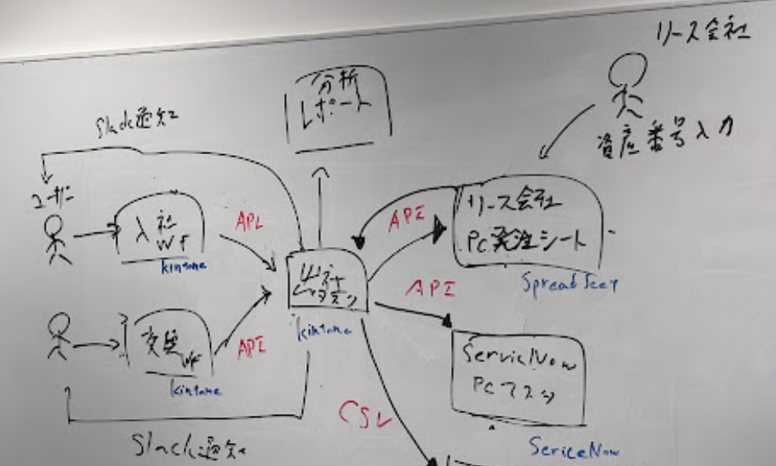 リース会社
分析
レポート
Slack通知
資産番号入力
ユーザー
入社
WF
API
API
リース会社
PC発注シート
kintone
Spreadseet
API
タスク
kintone
ServiceNow
PCマスタ
WF
API
kintone
CSV
Slack通知
SericeNow